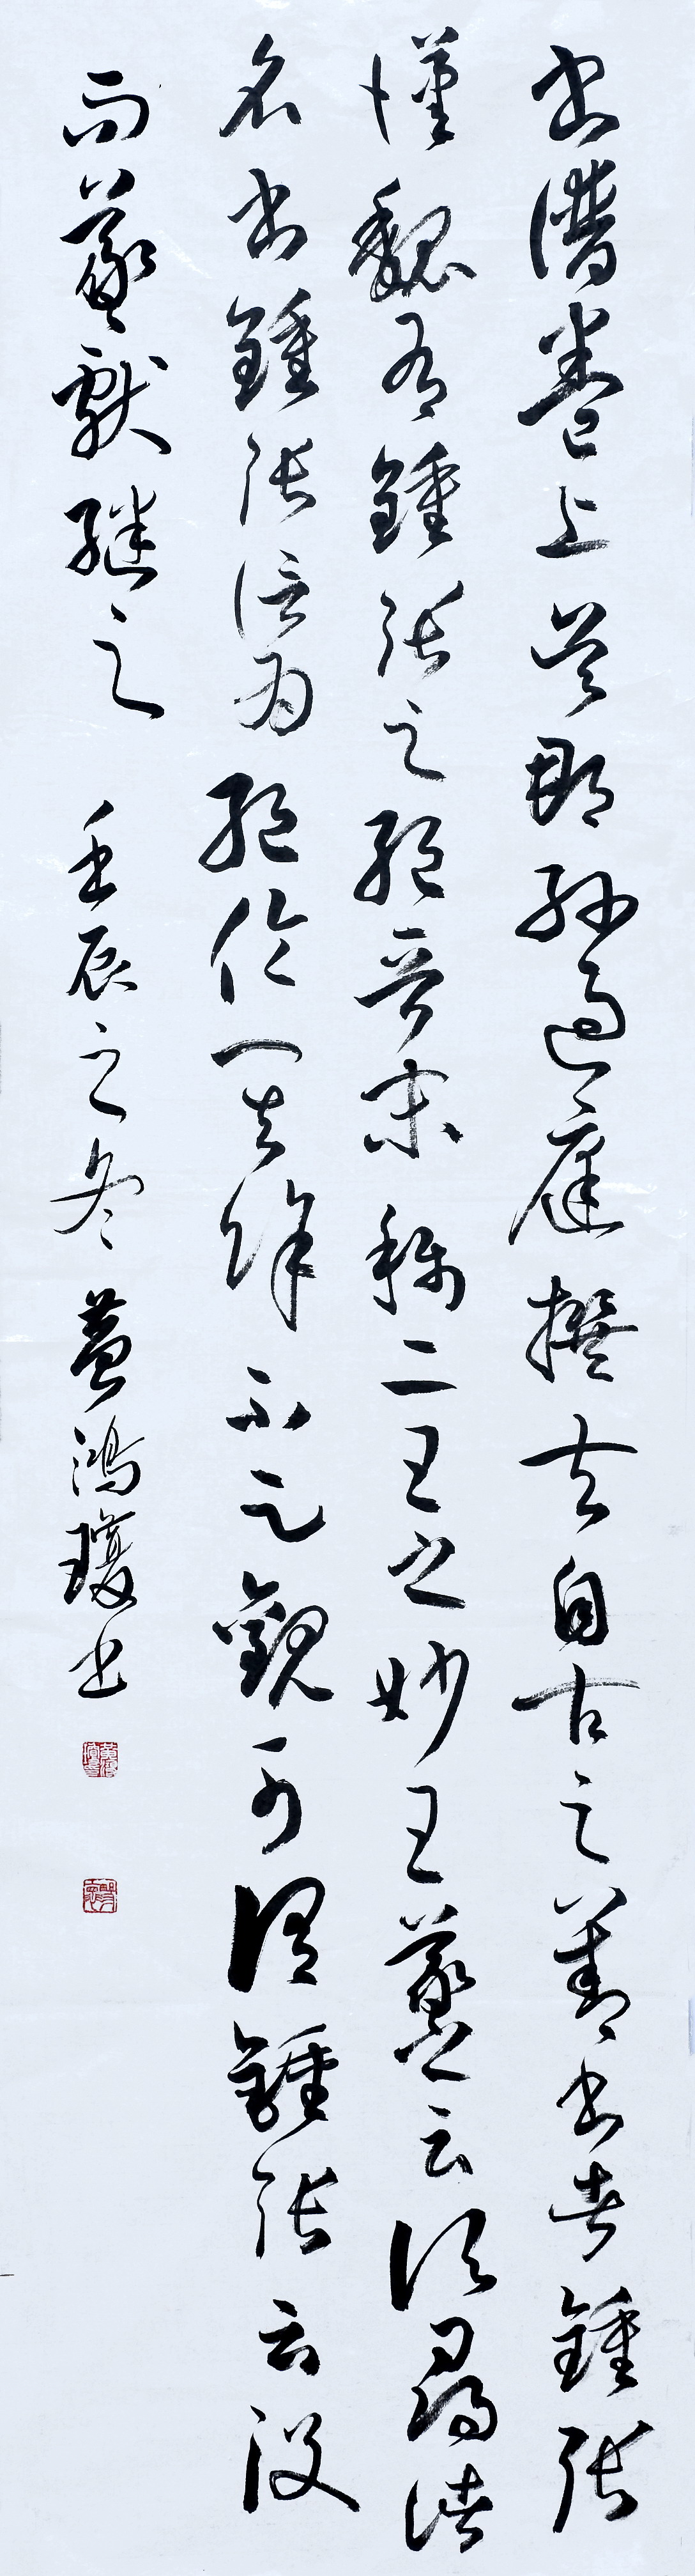 書譜卷上吳郡孫過庭撰夫自古之善書者鍾張
漢魏有鍾張之絕晉末稱二王之妙王羲之云頃尋諸
名書鍾張信為絕倫其餘不足觀可謂鍾張云沒
而羲獻繼之 壬辰之冬黃鴻瓊書